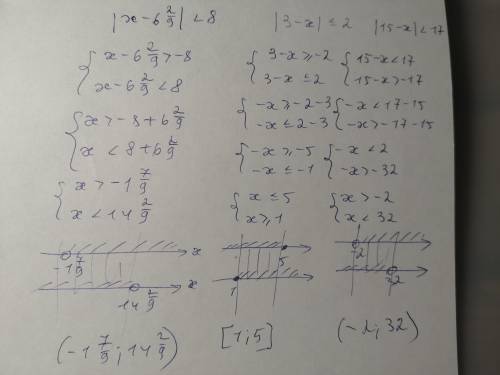 |x-6 2/9| < 8
{ x-6 2/9 > -8
x-6 2/9 < 8
{ x > -8+6 2/9
x < 8+6 2/9
{ x > -1 7/9
x < 14 2/9
-1 7/9 x
14 2/9 x
(-1 7/9; 14 2/9)
|3-x| ≤ 2
{ 3-x ≥ -2
3-x ≤ 2
{ -x ≥ -2-3
-x ≤ 2-3
{ -x ≥ -5
-x ≤ -1
{ x ≤ 5
x ≥ 1
5
1
[1; 5]
|15-x| < 17
{ 15-x < 17
15-x > -17
{ -x < 17-15
-x > -17-15
{ -x < 2
-x > -32
{ x > -2
x < 32
-2
32
(-2; 32)